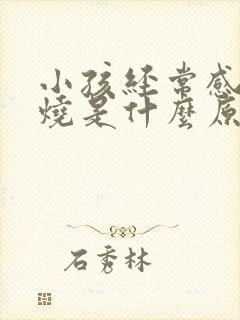 小孩經常感
燒是什麼原
石秀林